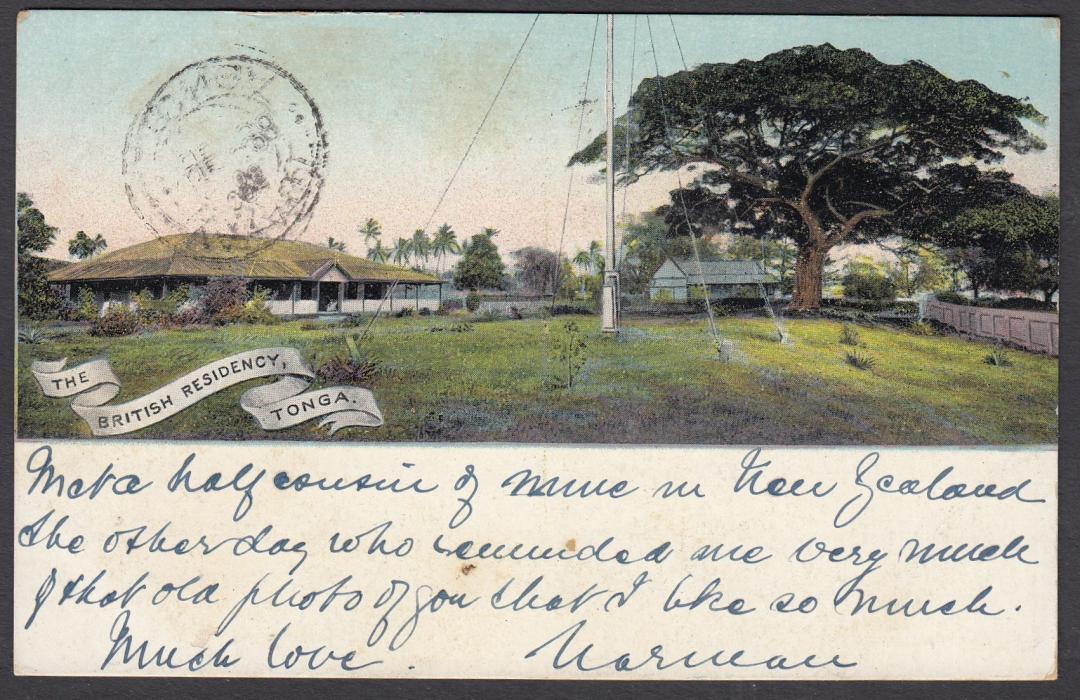 THE
BRITISH RESIDENCY,
TONGA.
Met a half cousin of mine in New Zealand
the other day who reminded me very much
of that old photo of you that I like so much.
Much love. Norman